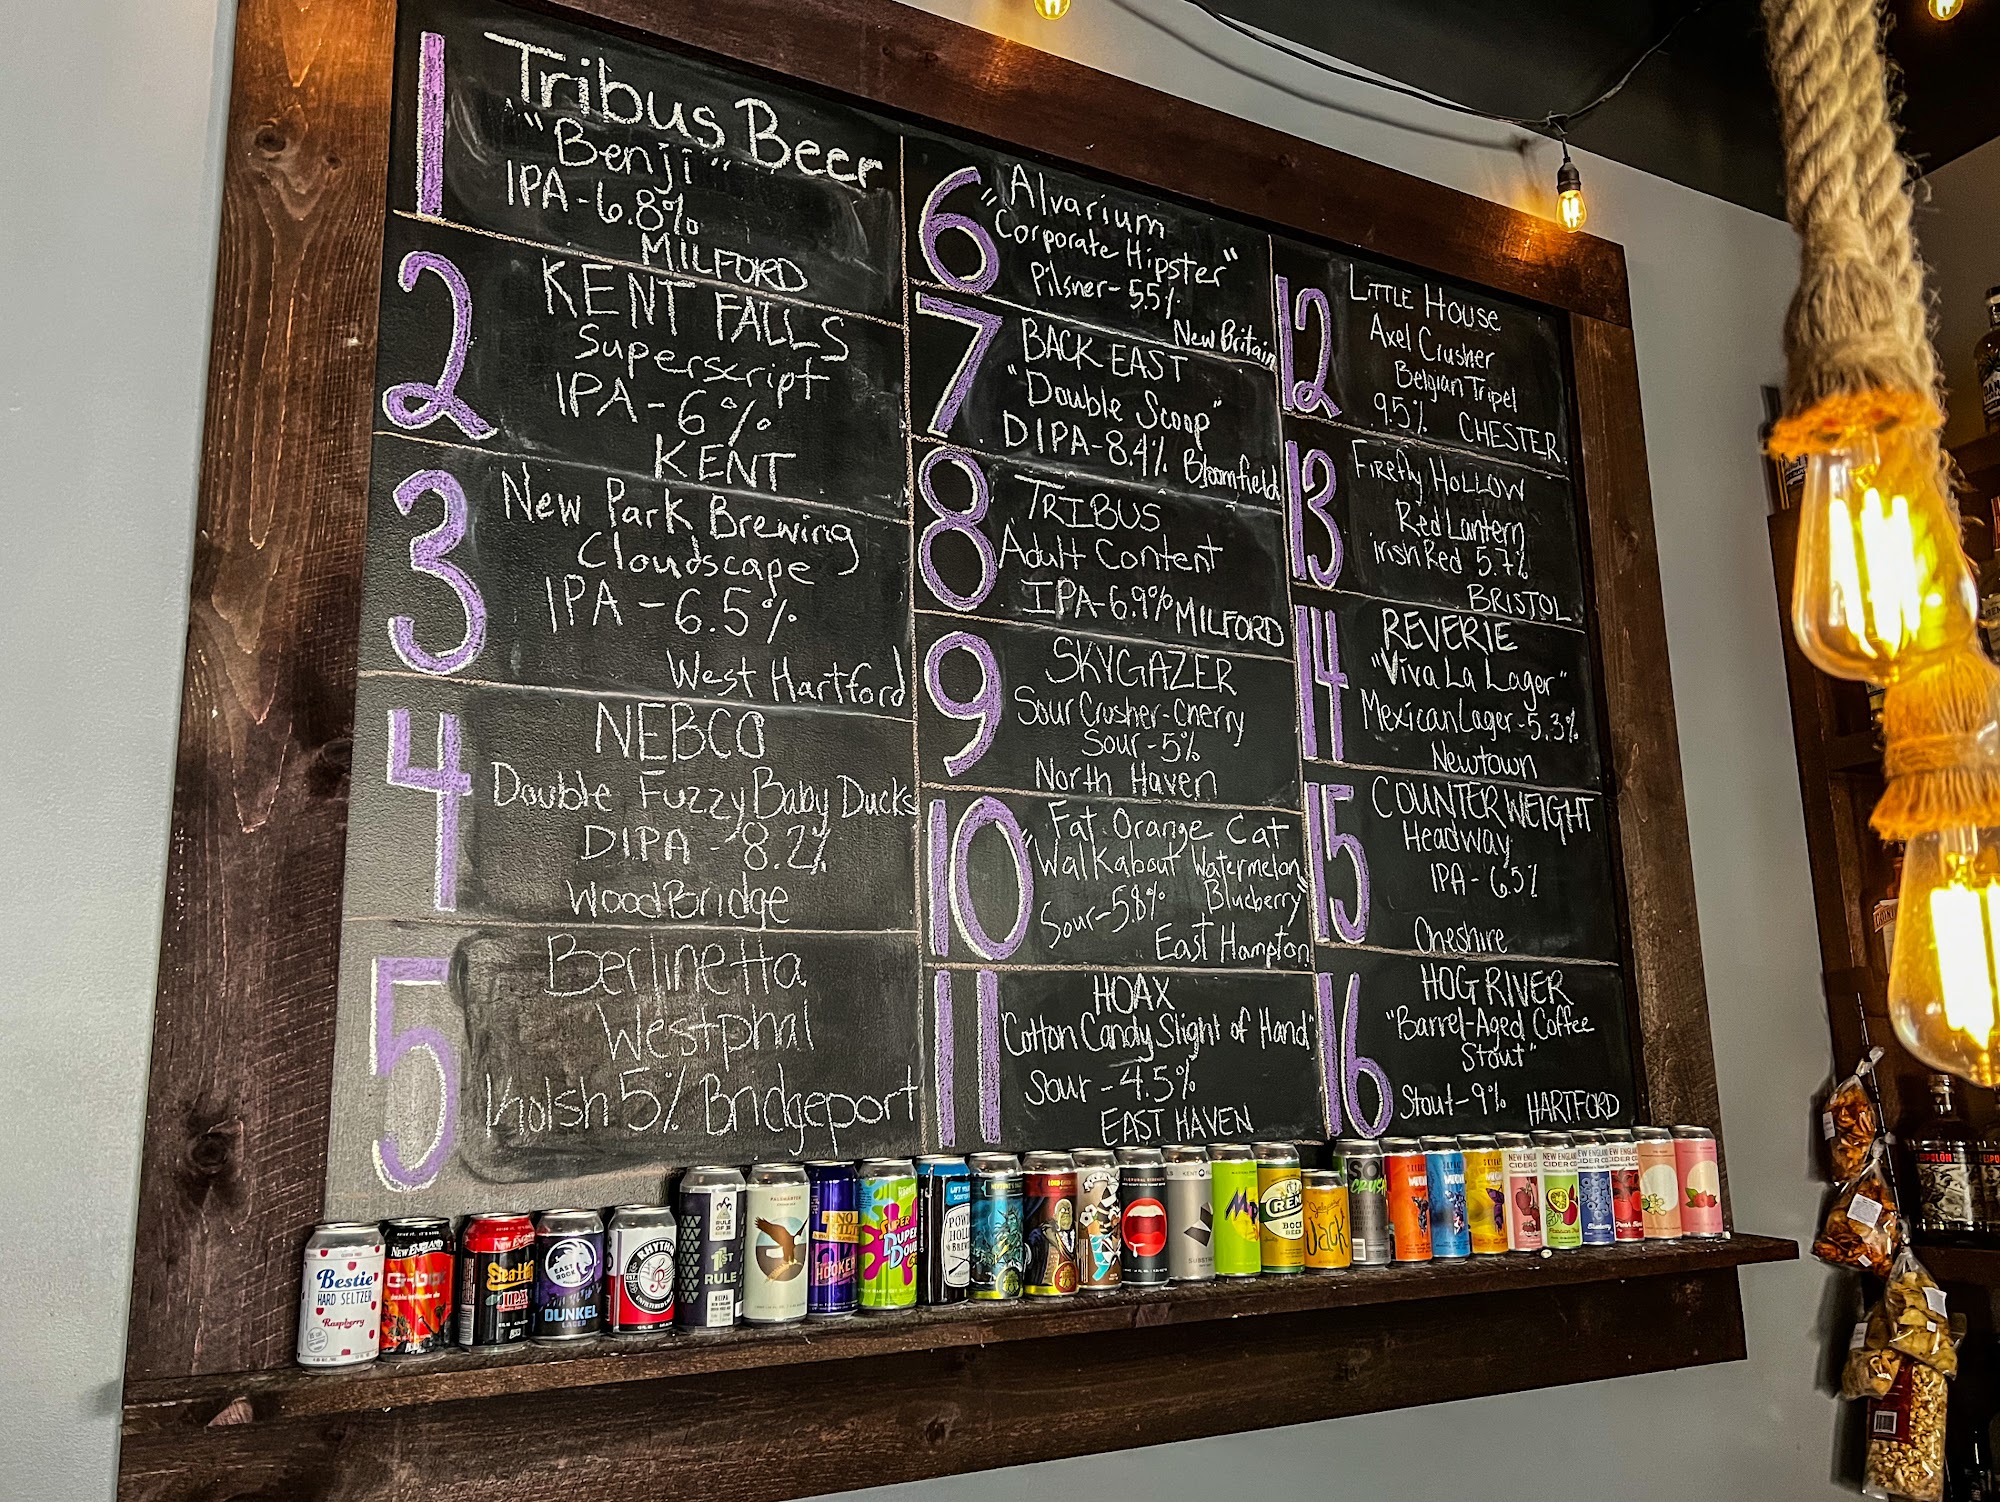 1
Tribus Beer
"Benji"
IPA-6.8%
MILFORD
2
KENT FALLS
Superscript
IPA-6%
KENT
3
New Park Brewing
Cloudscape
IPA-6.5%
West Hartford
4
NEBCO
Double Fuzzy Baby Ducks
DIPA-8.2%
WoodBridge
5
Berlinetta
Westphal
Kolsh 5% Bridgeport
6
Alvarium
"Corporate Hipster"
Pilsner-5.5%
New Britain
7
BACK EAST
"Double Scoop"
DIPA-8.4% Bloomfield
8
TRIBUS
Adult Content
IPA-6.9% MILFORD
9
SKYGAZER
Sour Crusher-Cherry
Sour-5%
North Haven
10
Fat Orange Cat
"Walkabout Watermelon
Blueberry"
Sour-5.8%
East Hampton
11
HOAX
"Cotton Candy Slight of Hand"
Sour-4.5%
EAST HAVEN
12
LITTLE HOUSE
Axel Crusher
Belgian Tripel
9.5% CHESTER
13
Firefly HOLLOW
Red Lantern
Irish Red 5.7%
BRISTOL
14
REVERIE
"Viva La Lager"
Mexican Lager-5.3%
Newtown
15
COUNTERWEIGHT
Headway
IPA-6.5%
Cheshire
16
HOG RIVER
"Barrel-Aged Coffee
Stout"
Stout-9% HARTFORD
Bestie
HARD SELTZER
Raspberry
NEW ENGLAND
G-bot
Sea Hag
IPA
EAST ROCK
DUNKEL
LAGER
RHYTHM
RULE OF
1ST
RULE
HOOKER
SUPER
DUPER
BOCK
BEER
Jack
SOUR
CRUSH
NEW ENGLAND
CIDER CO
NEW ENGLAND
CIDER CO